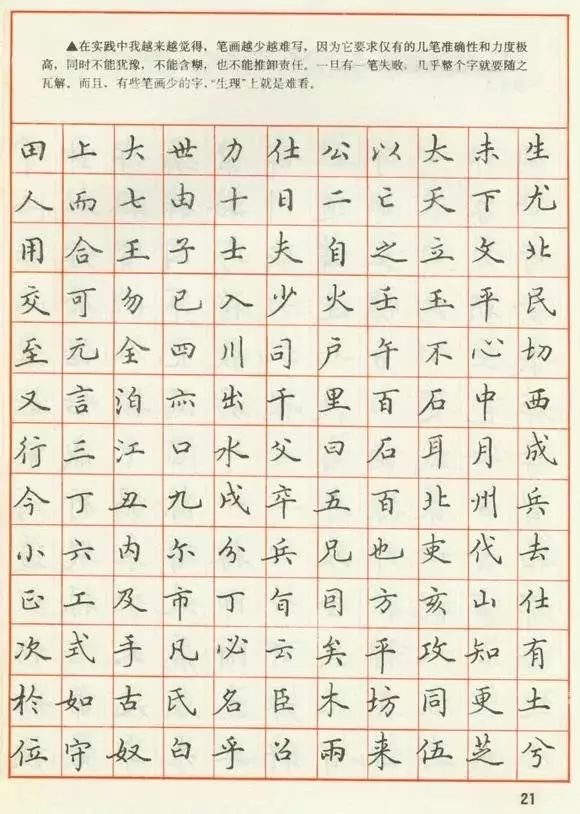 ▲在实践中我越来越觉得，笔画越少越难写，因为它要求仅有的几笔准确性和力度极
高，同时不能犹豫，不能含糊，也不能推卸责任。一旦有一笔失败，几乎整个字就要随之
瓦解。而且，有些笔画少的字，“生理”上就是难看。
田上大世力仕公以太未生
人而七由十日二亡天下尤
用合王子士夫自之立文北
交可勿已入少火壬玉平民
至元全四川司户午不心切
又言泊亦出千里百石中西
行三江口水父曰石耳月成
今丁丑九戌卒五百北州兵
小六内尔分兵兄也吏代去
正工及市丁旬回方亥山仕
次式手凡必云矣平攻知有
於如古氏名臣木坊同更土
位守奴白乎召雨来伍芝兮
21